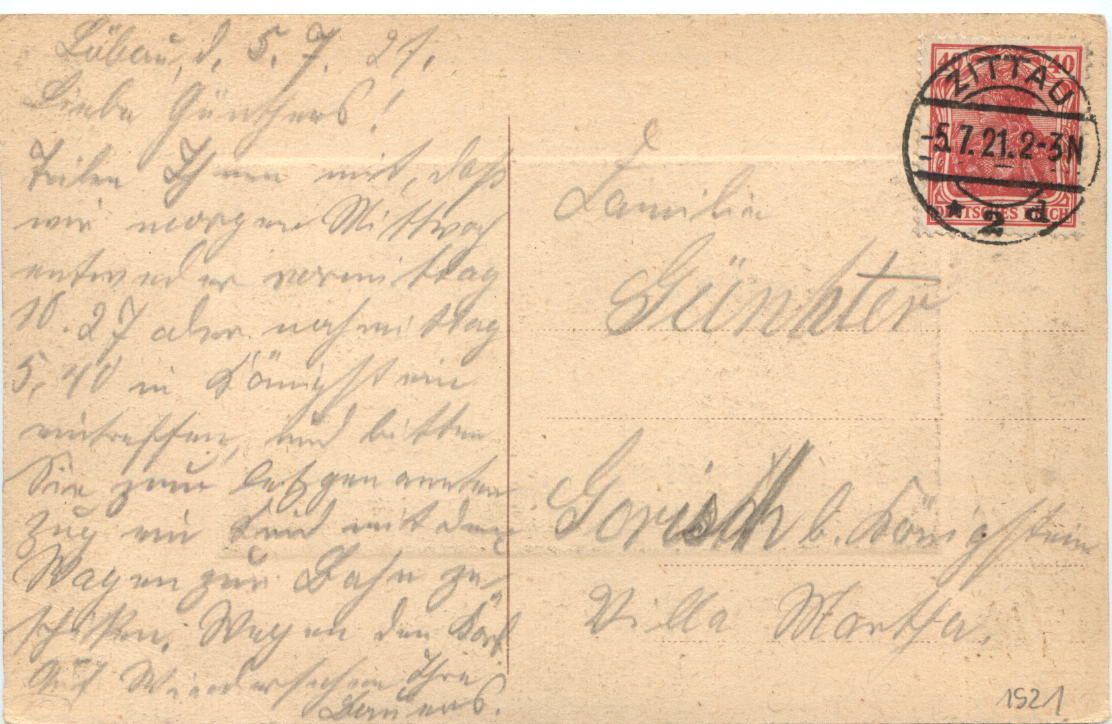 Löbau, d. 5. 7. 21.
Liebe Günthers!
Teilen Ihnen mit, daß
wir morgen Mittwoch
entweder vormittag
10.27 oder nachmittag
5,40 in Königstein
eintreffen, und bitten
Sie zum letztgenannten
Zug ein Kind mit dem
Wagen zur Bahn zu
schicken. Wegen den
Auf Wiedersehen Ihre
Bauers.
40 40
DEUTSCHES REICH
ZITTAU
-5.7.21.2-3N
* 2 d
Familie
Günhter
Gorisch b. Königstein
Villa Martha.
1921